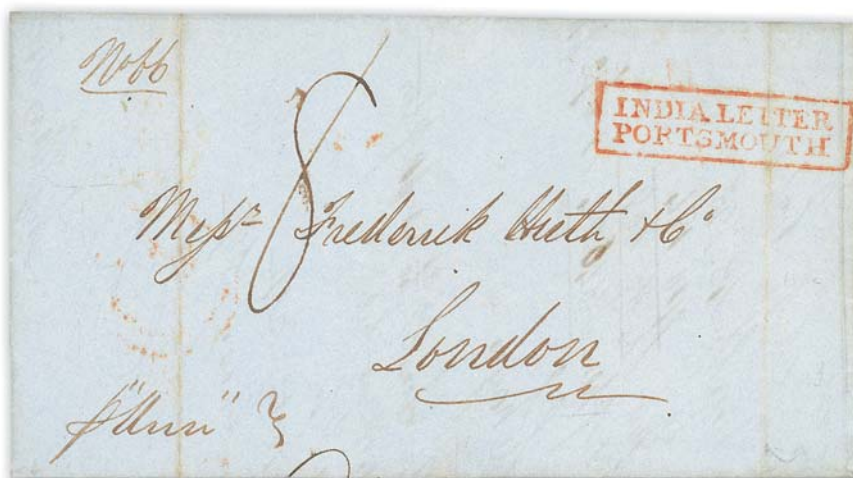 No 66
INDIA LETTER
PORTSMOUTH
8
Messrs Frederick Huth & Co
London
p "Ann"